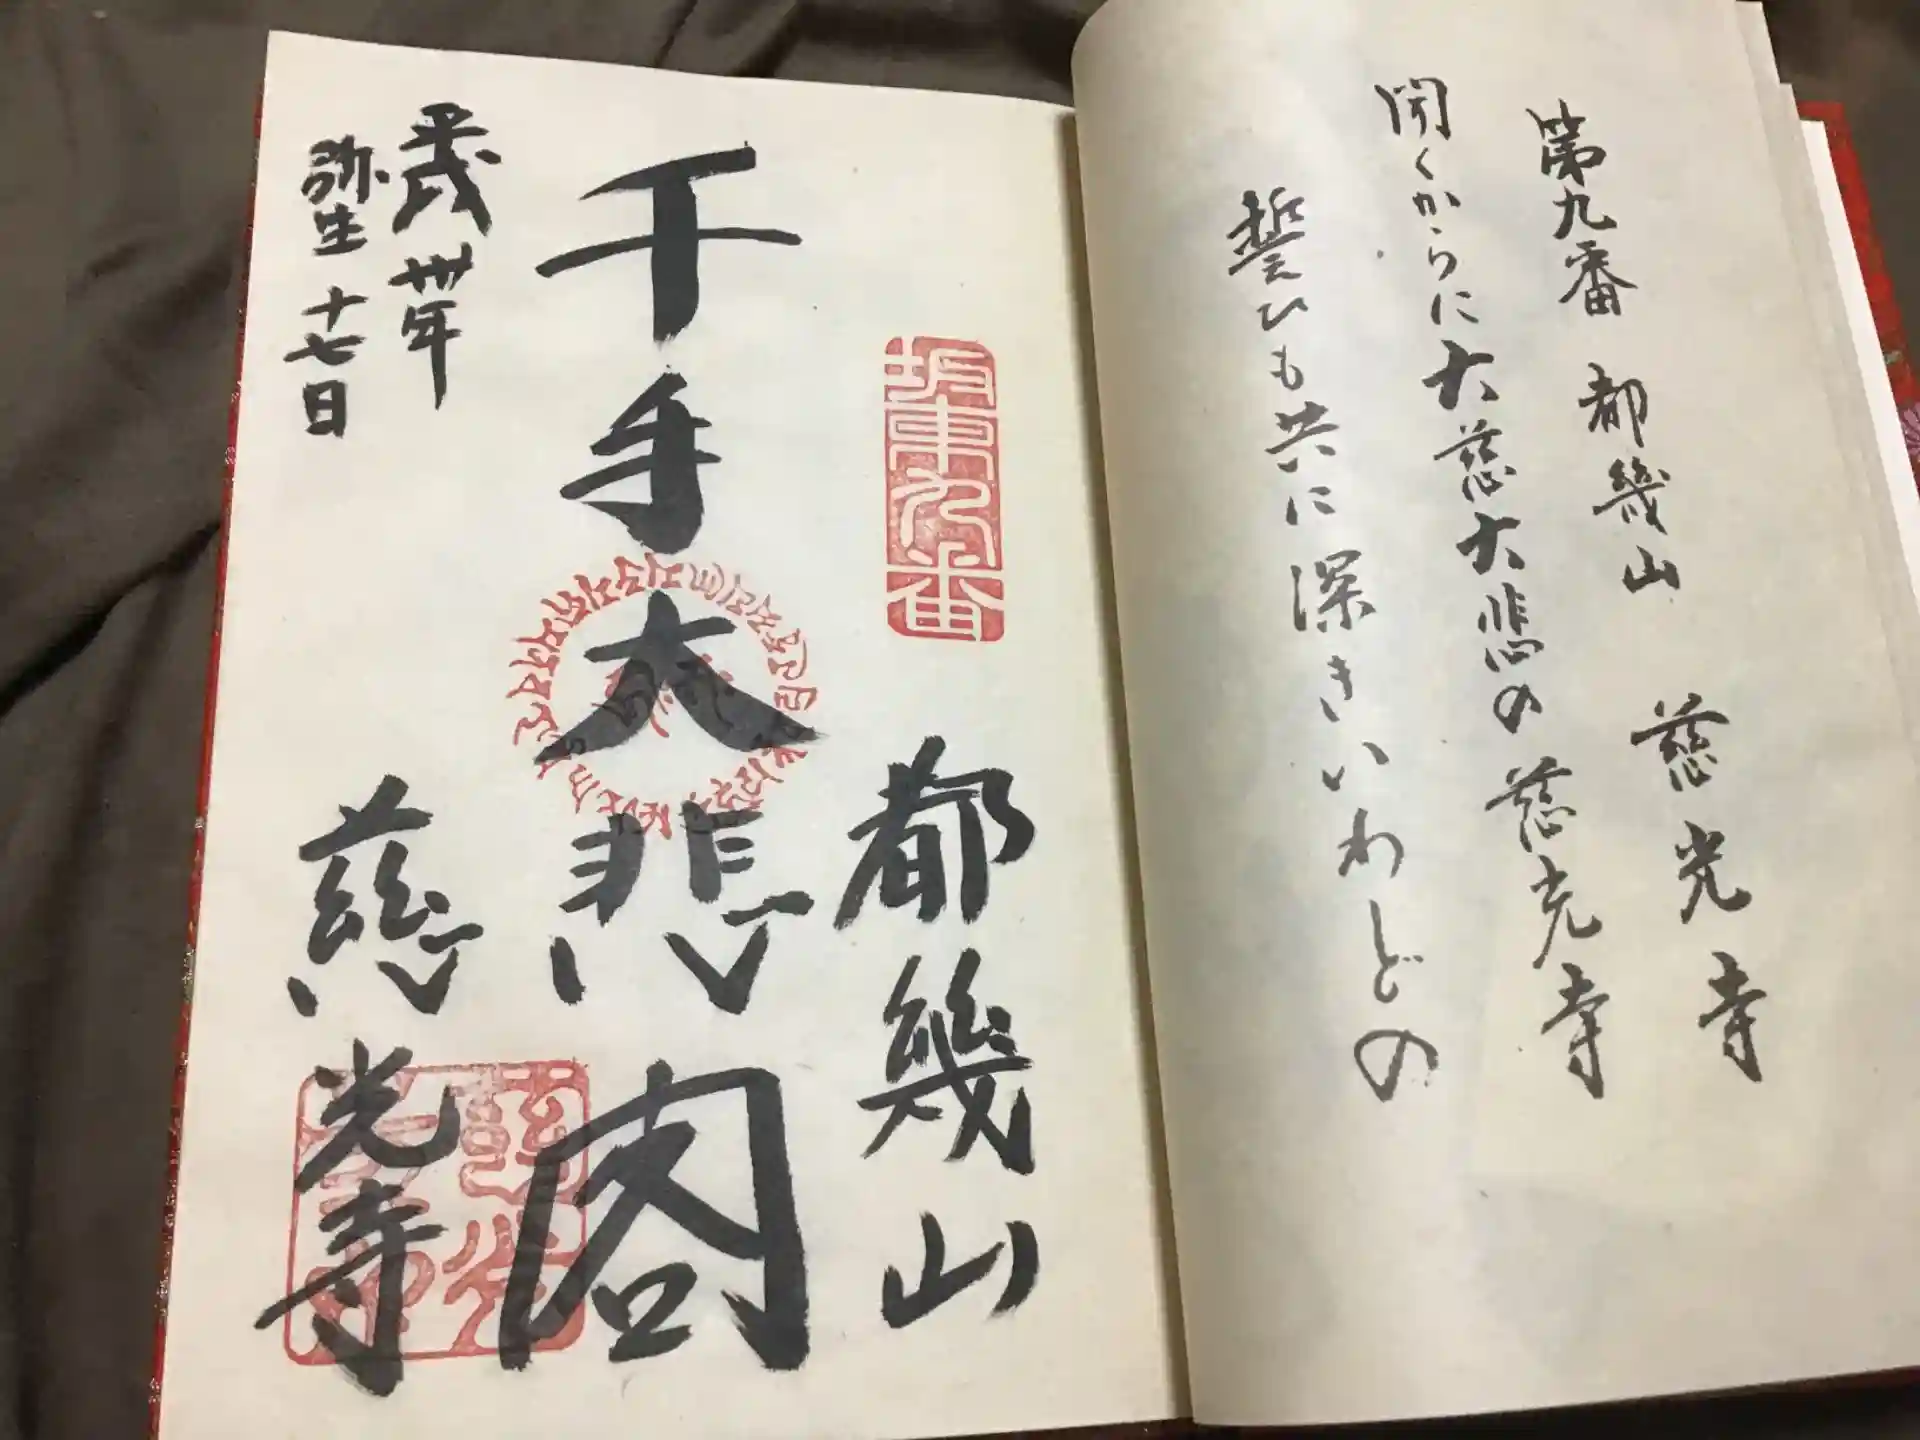 第九番 都幾山 慈光寺
聞くからに大慈大悲の慈光寺
誓ひも共に深きいわどの
坂東九番
都幾山
千手大悲閣
慈光寺
平成卅年
弥生十七日